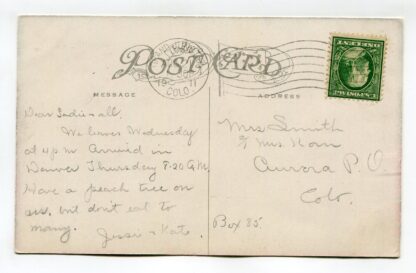 POST CARD
COLO
MESSAGE
ADDRESS
Dear Sadie + all,
We leave Wednesday
at 4 pm Arrived in
Denver Thursday 8-20 A.M.
Have a peach tree on
but don't eat to
many. Jessie + Kate.
Mrs Smith
c/o Mrs Horn
Aurora P. O
Colo.
Box 85